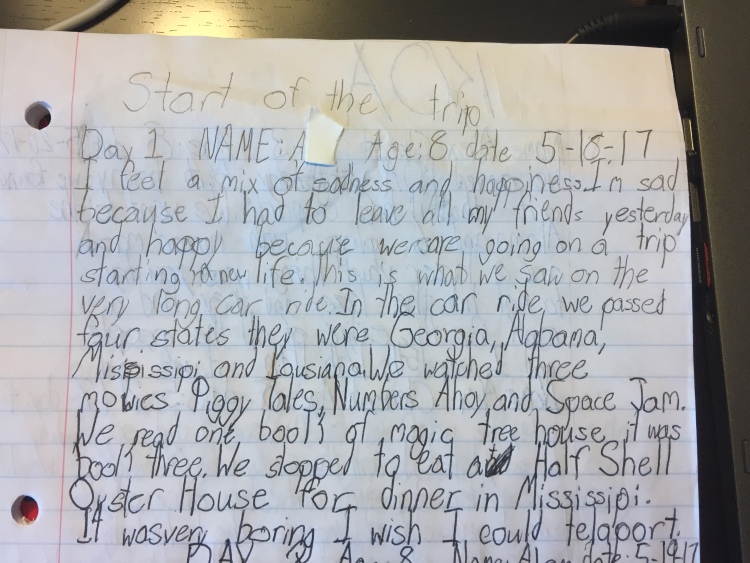 Start of the trip
Day 1 NAME: A Age: 8 date 5-18-17
I feel a mix of sadness and happiness. I'm sad
because I had to leave all my friends yesterday
and happy because we are going on a trip
starting a new life. This is what we saw on the
very long car ride. In the car ride, we passed
four states they were Georgia, Algbama,
Mississipi and Lousiana. We watched three
movies: Piggy Tales, Numbers Ahoy, and Space Jam.
We read one book of magic tree house, it was
book three. We stopped to eat at Half Shell
Oyster House for dinner in Mississipi.
It was very boring I wish I could teleport.
DAY 2 Age: 8 Name: Alan date: 5-19-17